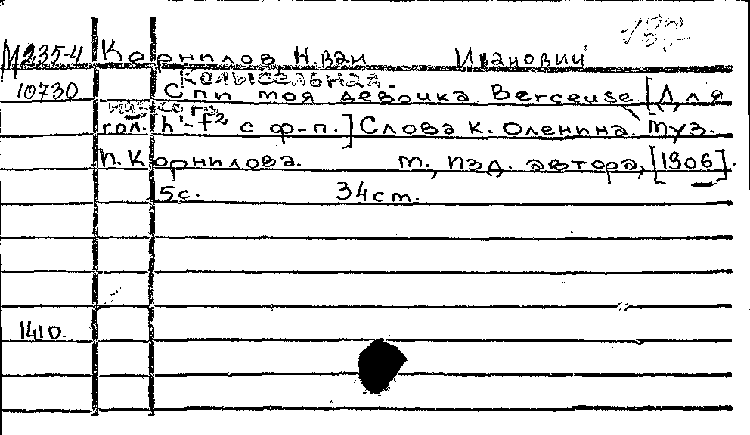 М235-4 Корнилов Иван Иванович
Колыбельная.
10730 Спи моя девочка Berceuse [Для
гол. h¹-f² с ф-п.] Слова К. Оленина. Муз.
И. Корнилова. М., изд. автора, [1906].
5с. 34см.
1410